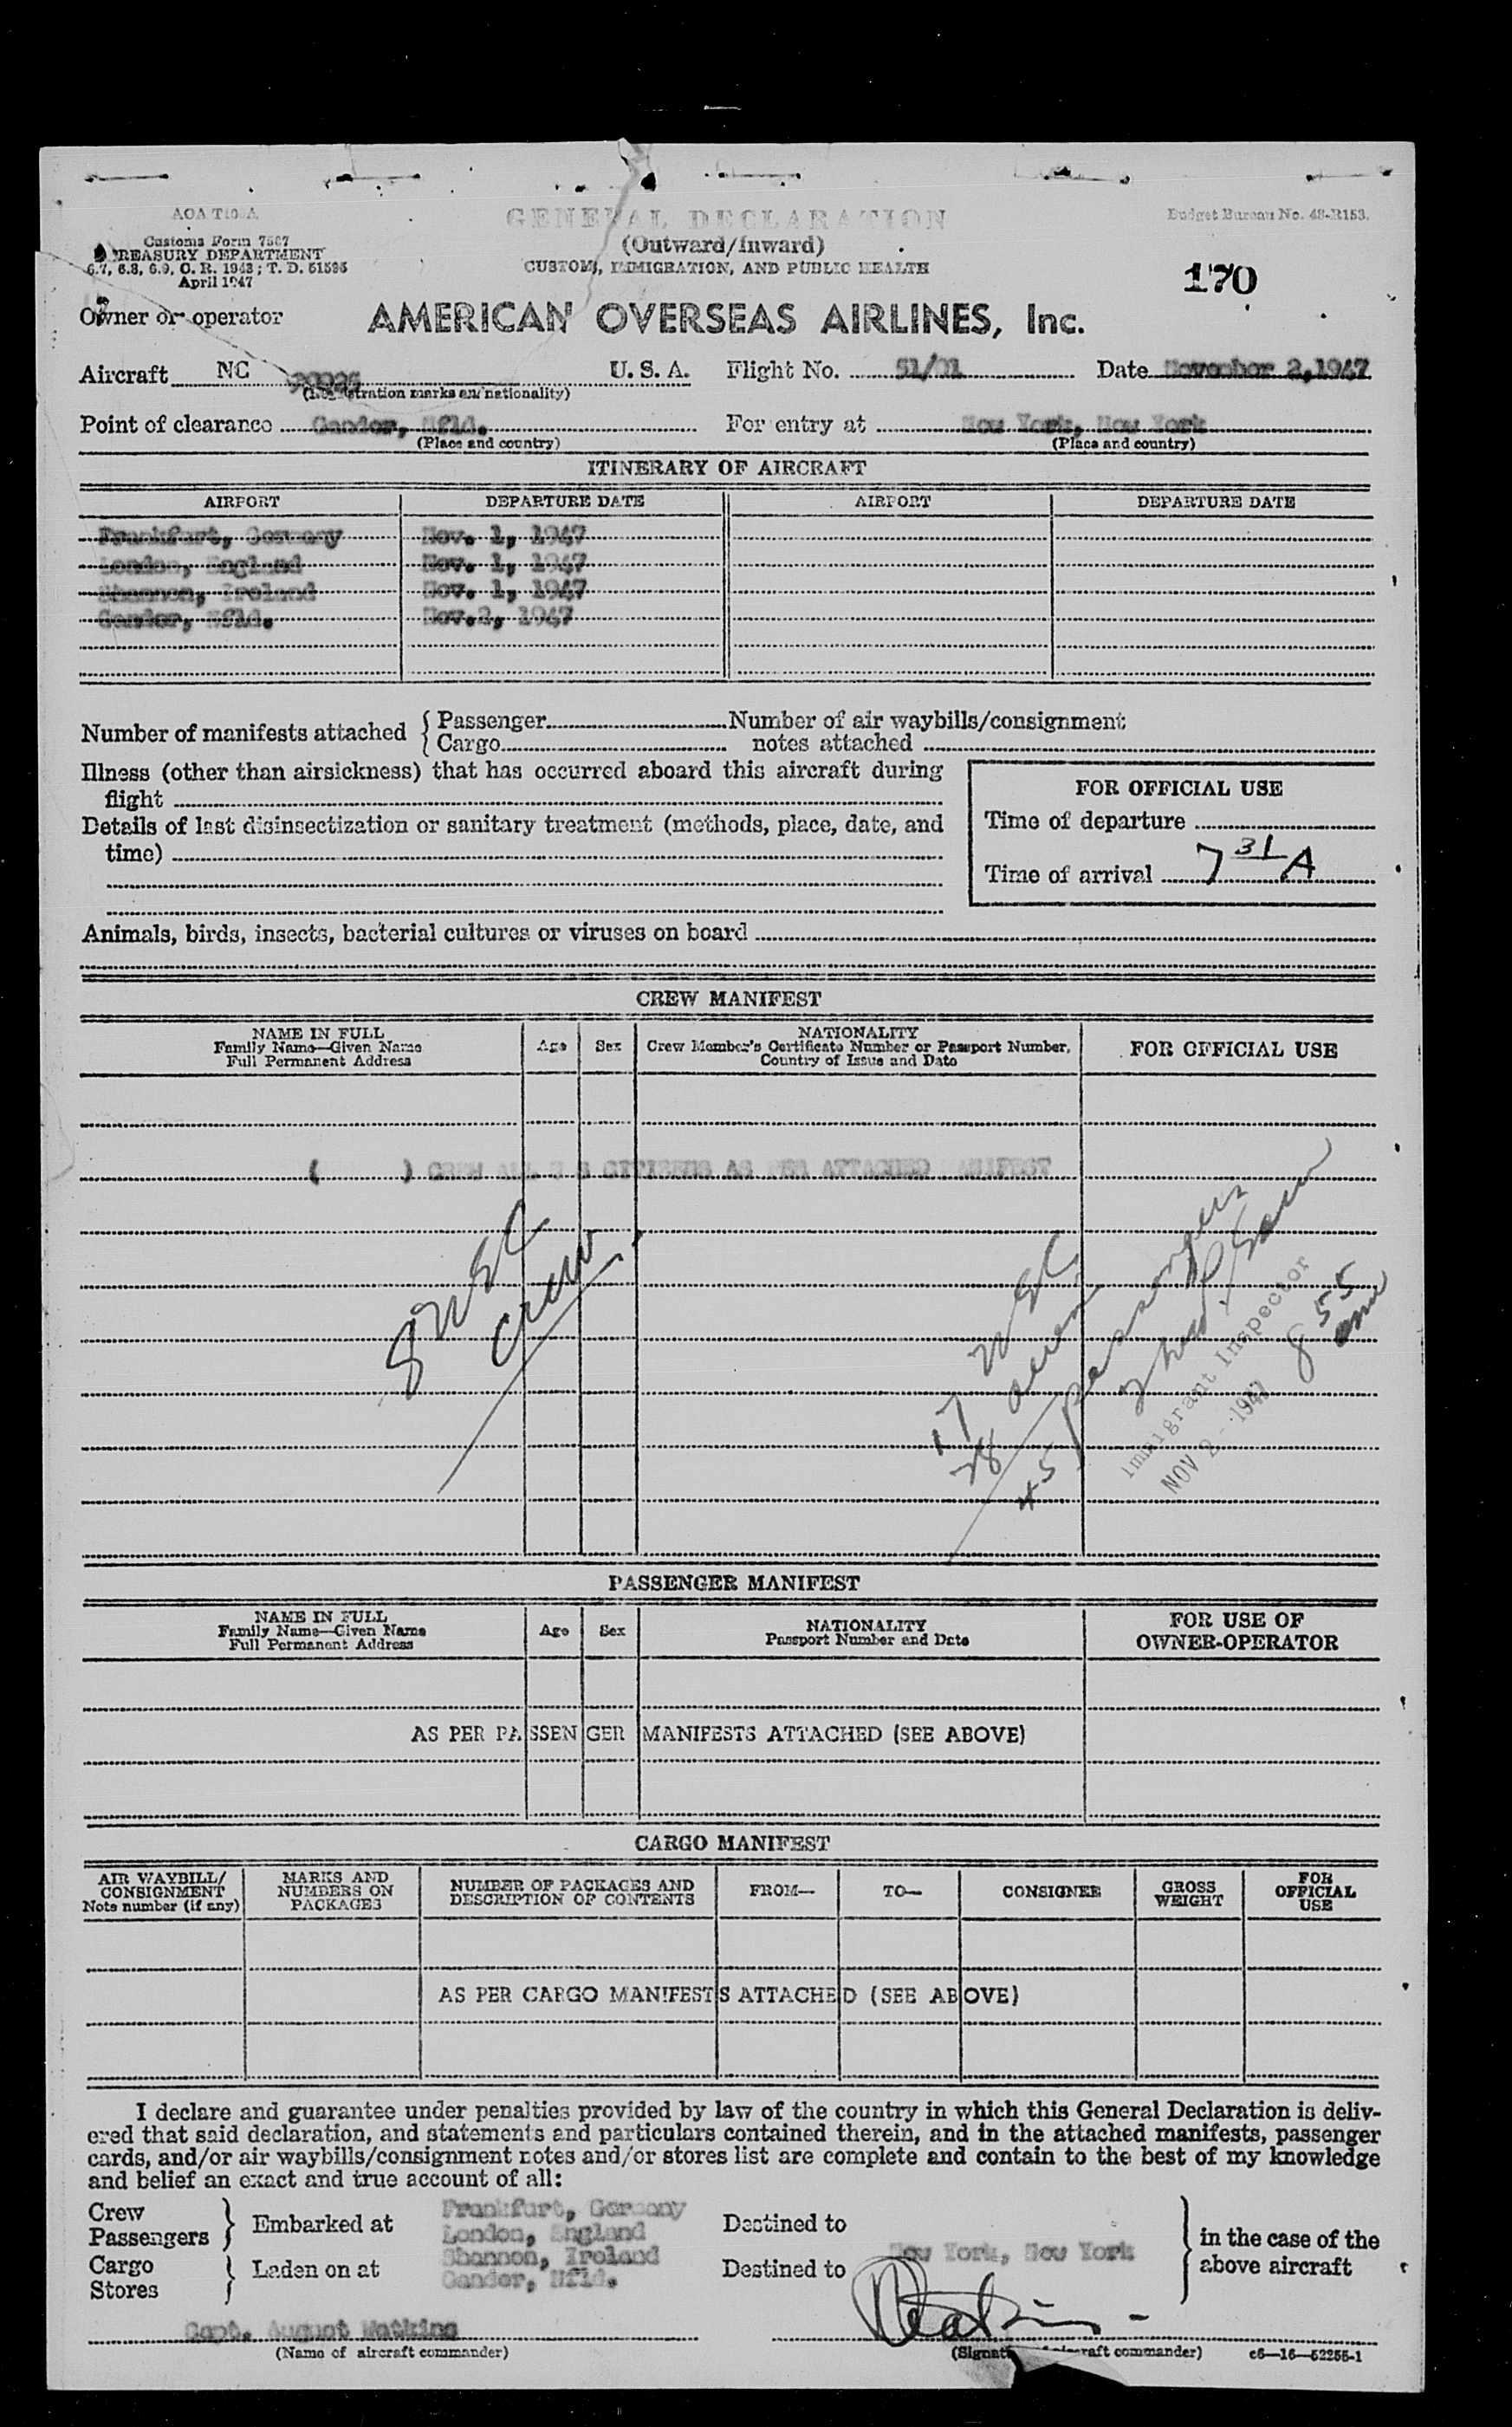 AOA T108A
GENERAL DECLARATION
(Outward/Inward)
CUSTOMS, IMMIGRATION, AND PUBLIC HEALTH
Budget Bureau No. 48-R153.
Customs Form 7507
TREASURY DEPARTMENT
6.7, 6.8, 6.9, C. R. 1943; T. D. 51595
April 1947
170
Owner or operator AMERICAN OVERSEAS AIRLINES, Inc.
Aircraft NC U. S. A. Flight No. 51/01 Date November 2, 1947
(Registration marks and nationality)
Point of clearance Gander, Nfld. For entry at New York, New York
(Place and country) (Place and country)
ITINERARY OF AIRCRAFT
AIRPORT DEPARTURE DATE AIRPORT DEPARTURE DATE
Frankfurt, Germany Nov. 1, 1947
London, England Nov. 1, 1947
Shannon, Ireland Nov. 1, 1947
Gander, Nfld. Nov.2, 1947
Number of manifests attached { Passenger Number of air waybills/consignment
Cargo notes attached
Illness (other than airsickness) that has occurred aboard this aircraft during
flight
Details of last disinsectization or sanitary treatment (methods, place, date, and
time)
FOR OFFICIAL USE
Time of departure
Time of arrival 7 31 A
Animals, birds, insects, bacterial cultures or viruses on board
CREW MANIFEST
NAME IN FULL
Family Name—Given Name
Full Permanent Address
Age Sex
NATIONALITY
Crew Member's Certificate Number or Passport Number,
Country of Issue and Date
FOR OFFICIAL USE
( ) CREW ALL U S CITIZENS AS PER ATTACHED MANIFEST
8 USC
Crew
17 USC
28 aliens
45 passengers
Immigrant Inspector
NOV 2 - 1947
8 55
am
PASSENGER MANIFEST
NAME IN FULL
Family Name—Given Name
Full Permanent Address
Age Sex
NATIONALITY
Passport Number and Date
FOR USE OF
OWNER-OPERATOR
AS PER PASSENGER MANIFESTS ATTACHED (SEE ABOVE)
CARGO MANIFEST
AIR WAYBILL/
CONSIGNMENT
Note number (if any)
MARKS AND
NUMBERS ON
PACKAGES
NUMBER OF PACKAGES AND
DESCRIPTION OF CONTENTS
FROM— TO— CONSIGNEE
GROSS
WEIGHT
FOR
OFFICIAL
USE
AS PER CARGO MANIFESTS ATTACHED (SEE ABOVE)
I declare and guarantee under penalties provided by law of the country in which this General Declaration is deliv-
ered that said declaration, and statements and particulars contained therein, and in the attached manifests, passenger
cards, and/or air waybills/consignment notes and/or stores list are complete and contain to the best of my knowledge
and belief an exact and true account of all:
Crew
Passengers } Embarked at
Cargo
Stores } Laden on at
Frankfurt, Germany
London, England
Shannon, Ireland
Gander, Nfld.
Destined to
Destined to New York, New York
} in the case of the
above aircraft
Capt. August Watkins
(Name of aircraft commander) (Signature of aircraft commander) c6—16—52255-1